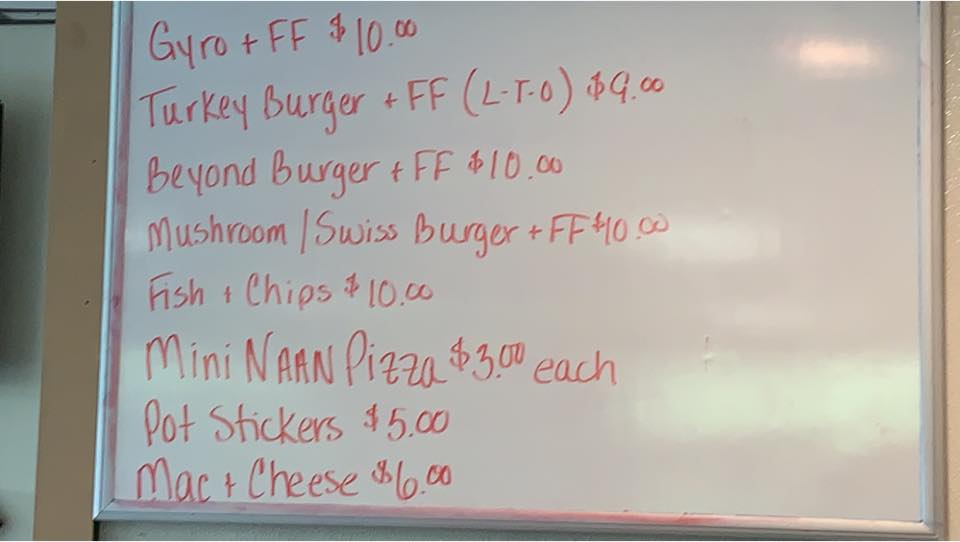 Gyro + FF $10.00
Turkey Burger + FF (L-T-O) $9.00
Beyond Burger + FF $10.00
Mushroom / Swiss Burger + FF $10.00
Fish + Chips $10.00
Mini NAAN Pizza $3.00 each
Pot Stickers $5.00
Mac + Cheese $6.00